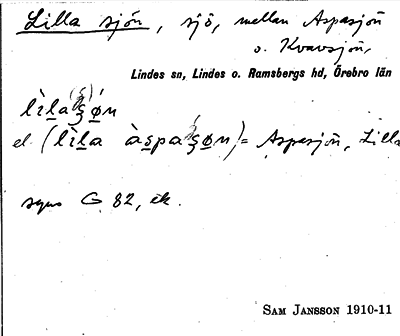 Lilla sjön, sjö, mellan Aspasjön
o. Kvavsjön,
Lindes sn, Lindes o. Ramsbergs hd, Örebro län
el. (lìla àspa = Aspasjön, Lilla
syns G 82, ek.
SAM JANSSON 1910-11